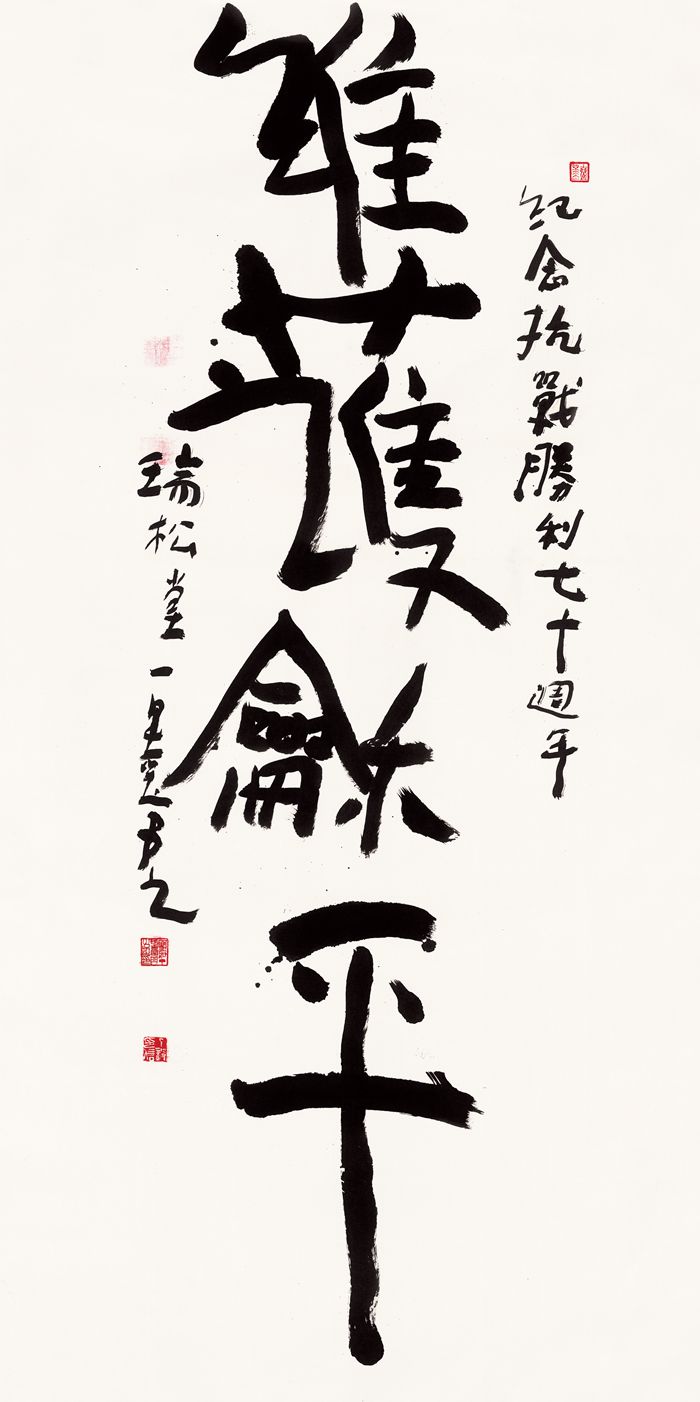 紀念抗戰勝利七十週年
維護龢平
瑞松堂一